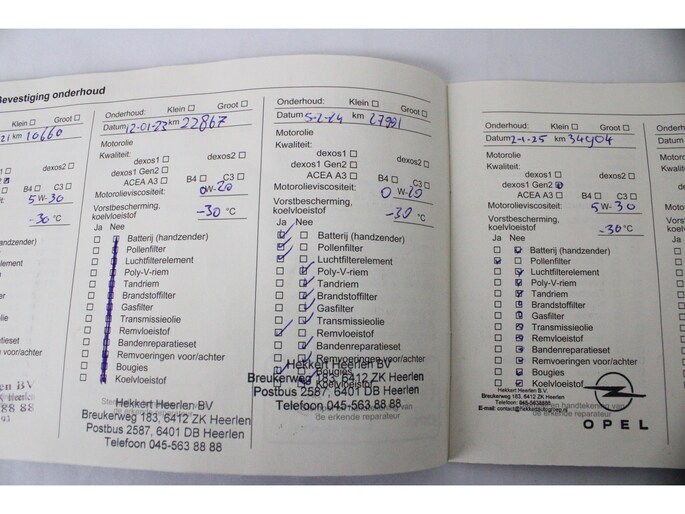 Bevestiging onderhoud
21 km 10660
W-30
5 W-30
-30 °C
Onderhoud: Klein Groot
Datum 12-01-23 km 22867
Motorolie
Kwaliteit:
dexos1 dexos2
dexos1 Gen2
ACEA A3 B4 C3
Motorolieviscositeit: 0W-20
Vorstbescherming,
koelvloeistof -30 °C
Ja Nee
Batterij (handzender)
Pollenfilter
Luchtfilterelement
Poly-V-riem
Tandriem
Brandstoffilter
Gasfilter
Transmissieolie
Remvloeistof
Bandenreparatieset
Remvoeringen voor/achter
Bougies
Koelvloeistof
Hekkert Heerlen BV
Breukerweg 183, 6412 ZK Heerlen
Postbus 2587, 6401 DB Heerlen
Telefoon 045-563 88 88
Onderhoud: Klein Groot
Datum 5-2-24 km 27991
Motorolie
Kwaliteit:
dexos1 dexos2
dexos1 Gen2
ACEA A3 B4 C3
Motorolieviscositeit: 0 W-20
Vorstbescherming,
koelvloeistof -30 °C
Ja Nee
Batterij (handzender)
Pollenfilter
Luchtfilterelement
Poly-V-riem
Tandriem
Brandstoffilter
Gasfilter
Transmissieolie
Remvloeistof
Bandenreparatieset
Remvoeringen voor/achter
Bougies
Koelvloeistof
Hekkert Heerlen BV
Breukerweg 183, 6412 ZK Heerlen
Postbus 2587, 6401 DB Heerlen
Telefoon 045-563 88 88
de erkende reparateur
Onderhoud: Klein Groot
Datum 2-1-25 km 34404
Motorolie
Kwaliteit:
dexos1 dexos2
dexos1 Gen2
ACEA A3 B4 C3
Motorolieviscositeit: 5 W-30
Vorstbescherming,
koelvloeistof -30 °C
Ja Nee
Batterij (handzender)
Pollenfilter
Luchtfilterelement
Poly-V-riem
Tandriem
Brandstoffilter
Gasfilter
Transmissieolie
Remvloeistof
Bandenreparatieset
Remvoeringen voor/achter
Bougies
Koelvloeistof
Hekkert Heerlen B.V.
Breukerweg 183, 6412 ZK Heerlen
Telefoon: 045-5638888
de erkende reparateur
OPEL